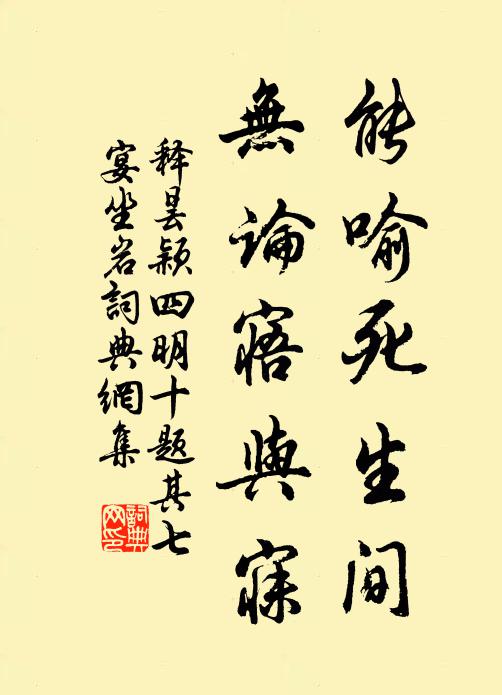 能喻死生间
無論寤與寐
释曇颖四明十题其七
宴坐岩詞典網集
詞典网印